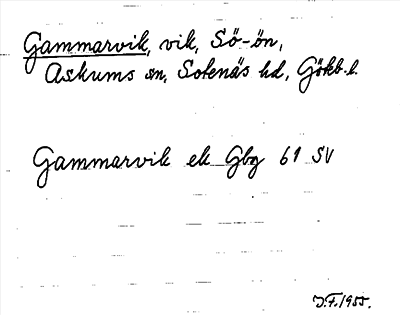 Gammarvik, vik, Sö-ön,
Askums sn, Sotenäs hd, Gökb. l.
Gammarvik ek Gbg 61 SV
J.F. 1955.